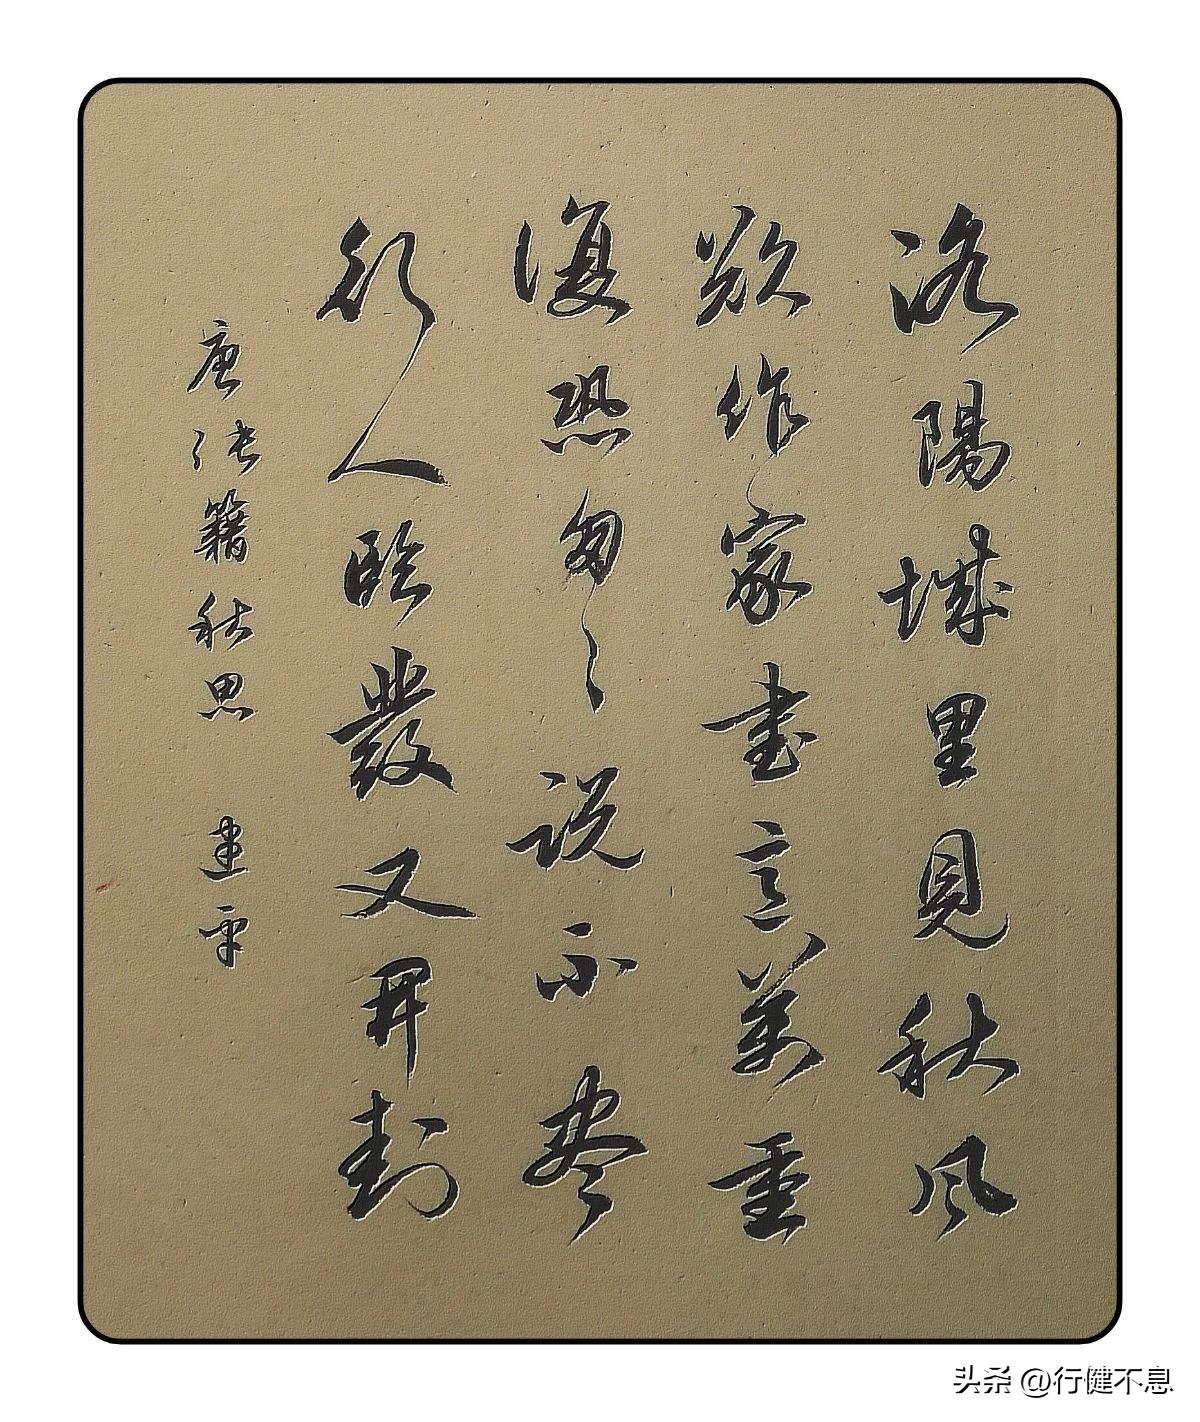 洛陽城里見秋風
欲作家書意萬重
復恐匆〻説不尽
行人臨發又開封
唐張籍秋思 建平
头条 @行健不息